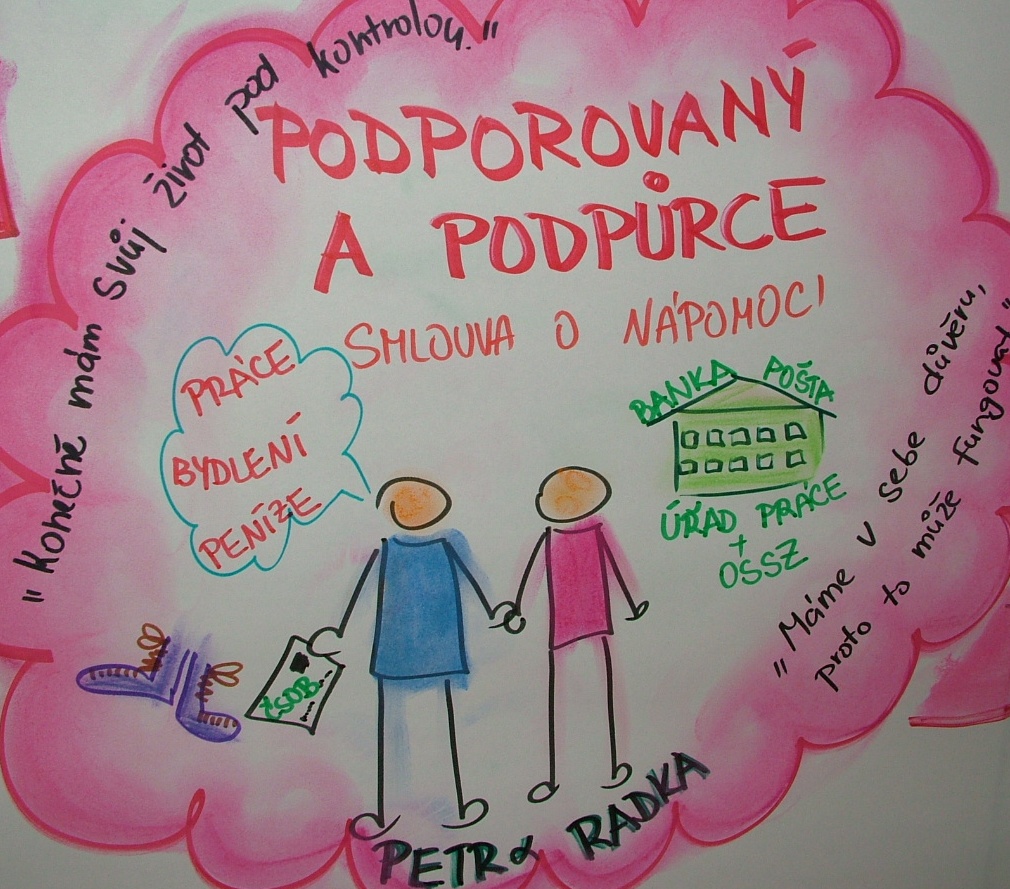 „Konečně mám svůj život pod kontrolou.“
PODPOROVANÝ
A PODPŮRCE
SMLOUVA O NÁPOMOCI
PRÁCE
BYDLENÍ
PENÍZE
BANKA POŠTA
ÚŘAD PRÁCE
+
OSSZ
„Máme v sebe důvěru,
proto to může fungovat“
ČSOB
PETR & RADKA